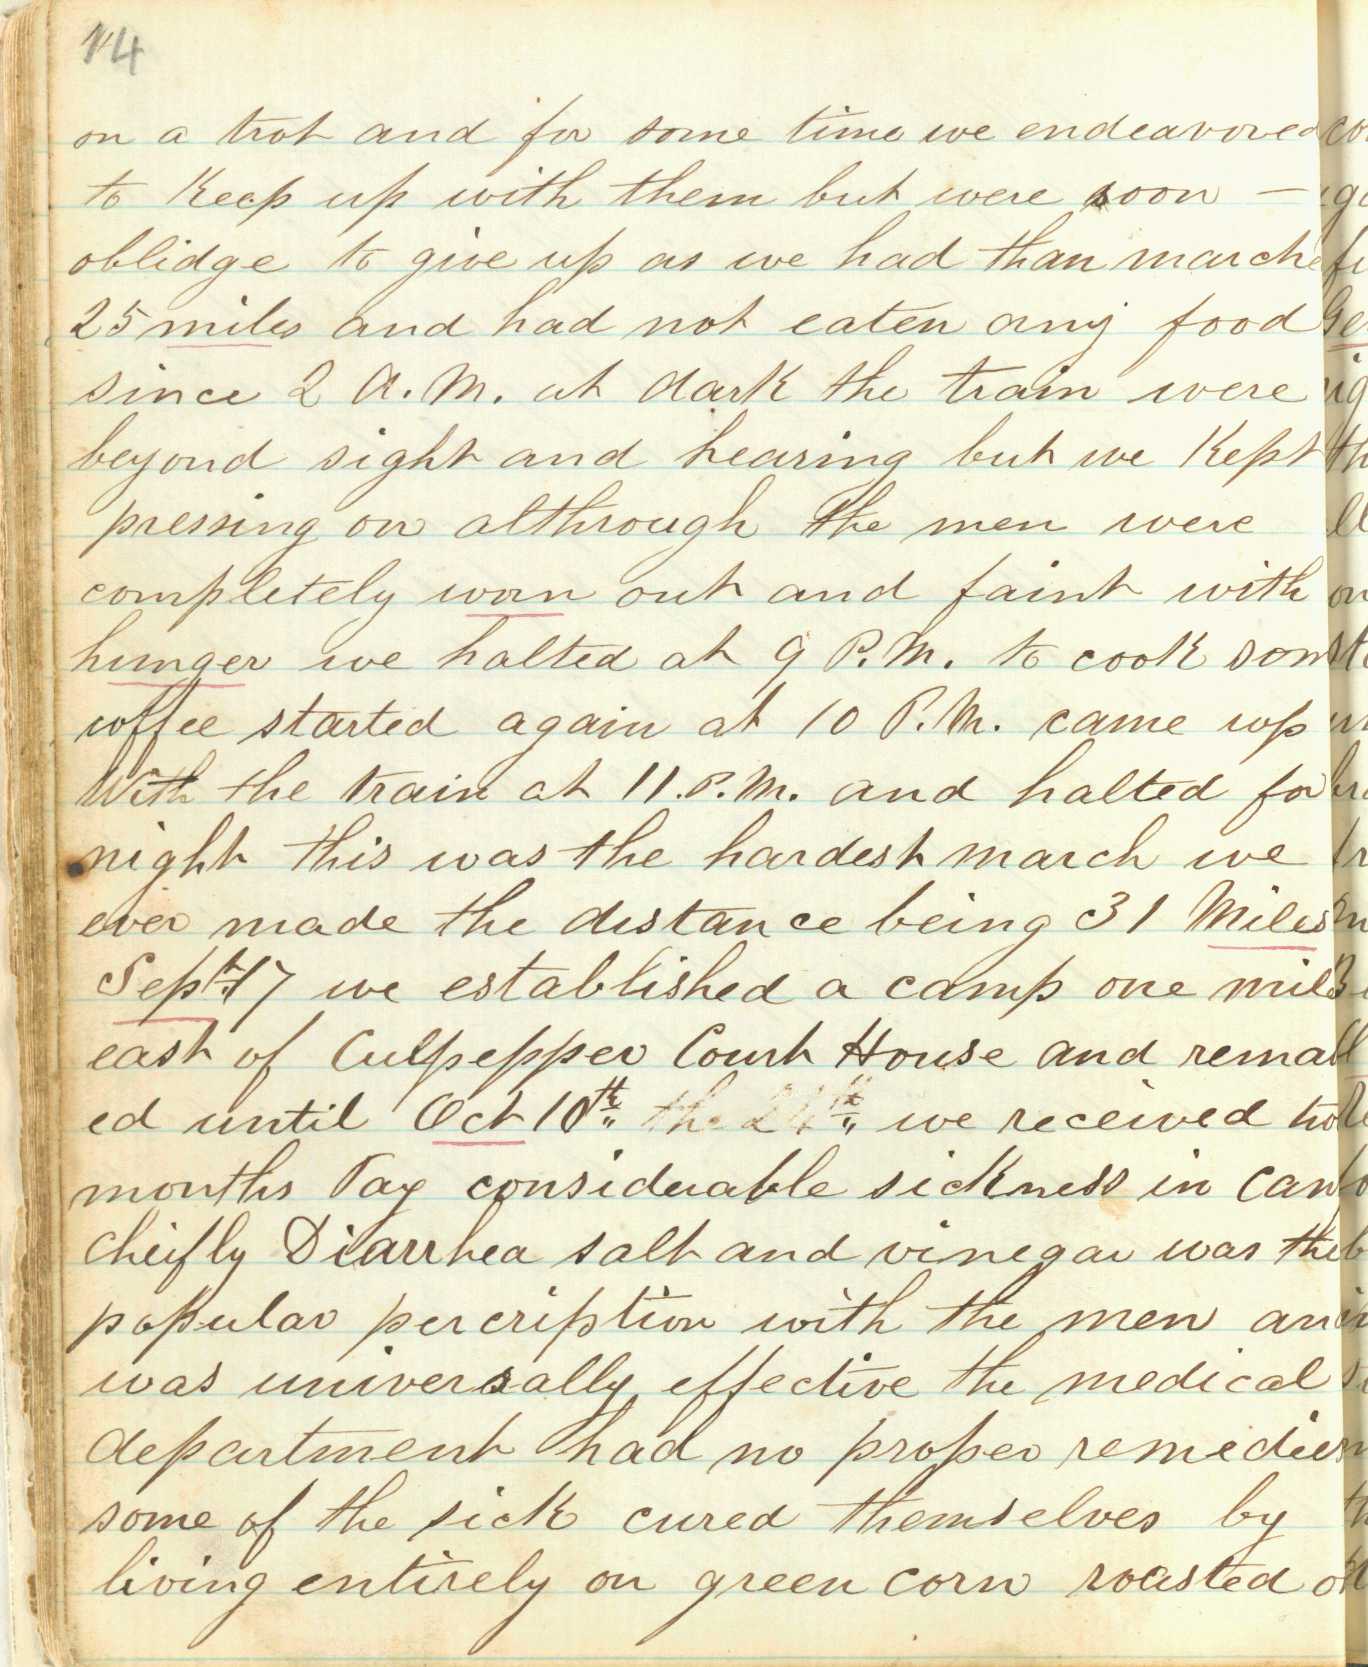 14
on a trot and for some time we endeavored
to Keep up with them but were soon —
oblidge to give up as we had than marche
25 miles and had not eaten any food
since 2 A.M. at dark the train were
beyond sight and hearing but we Kept
pressing on althrough the men were
completely worn out and faint with
hunger we halted at 9 P.M. to cook som
coffee started again at 10 P.M. came up
With the train at 11.P.M. and halted for
night this was the hardest march we
ever made the distance being 31 Miles
Sept 17 we established a camp one mile
east of Culpepper Court House and remai
ed until Oct 10th the 24th we received two
months Pay considerable sickness in Cam
cheifly Diarrhea salt and vinegar was the
popular percription with the men and
was universally effective the medical
department had no proper remedies
some of the sick cured themselves by
living entirely on green corn roasted on